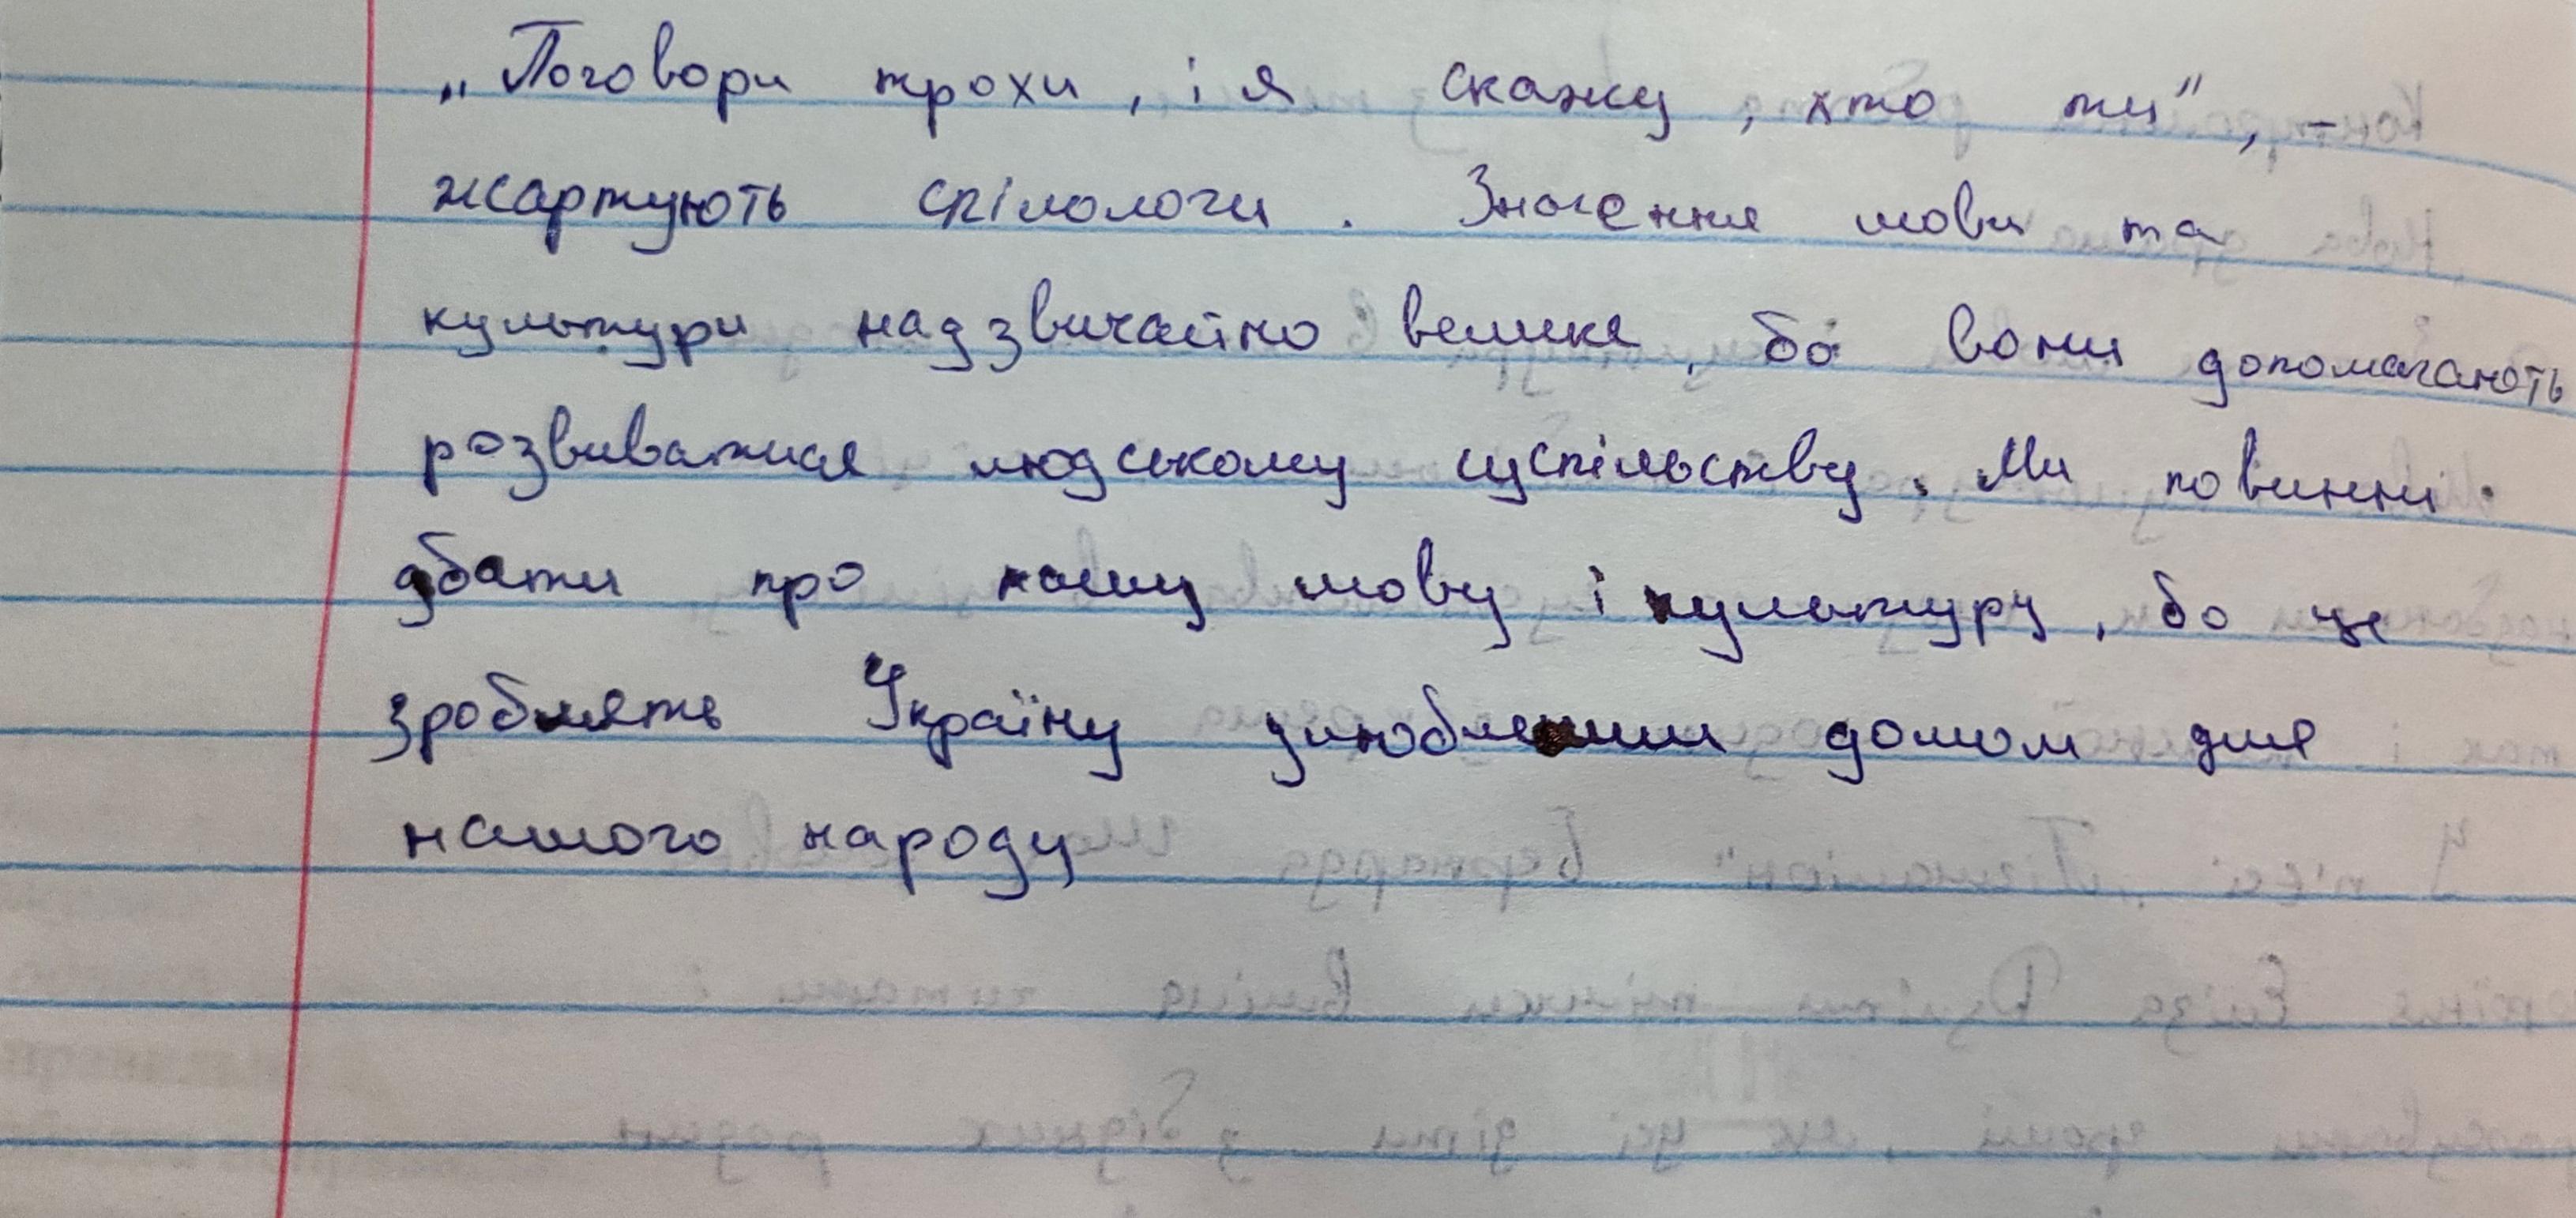 „Поговори трохи, і я скажу, хто ти", –
жартують філологи. Значення мови та
культури надзвичайно велике, бо вони допомагають
розвиватися людському суспільству. Ми повинні
дбати про нашу мову і культуру, бо це
зроблять Україну улюбленим домом для
нашого народу